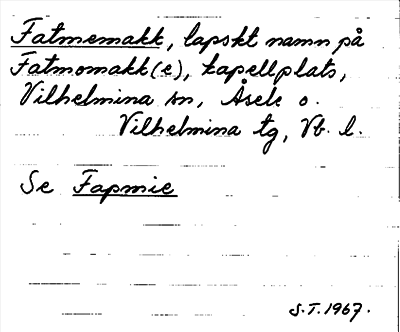 Fatmemakk, lapskt namn på
Fatmomakk(e), kapellplats,
Vilhelmina sn, Åsele o.
Vilhelmina tg, Vb. l.
Se Fapmie
S.T. 1967.